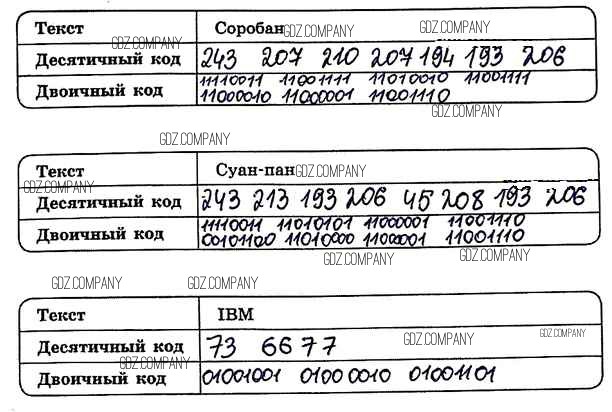 Текст Соробан GDZ.COMPANY GDZ.COMPANY
GDZ.COMPANY
Десятичный код 243 207 210 207 194 193 206
Двоичный код 11110011 11001111 11010010 11001111
11000010 11000001 11001110
GDZ.COMPANY
GDZ.COMPANY
Текст Суан-пан GDZ.COMPANY
GDZ.COMPANY
Десятичный код 243 213 193 206 45 208 193 206
Двоичный код 11110011 11010101 11000001 11001110
00101100 11010000 1100001 11001110
GDZ.COMPANY GDZ.COMPANY
GDZ.COMPANY GDZ.COMPANY
Текст IBM
Десятичный код 73 66 77 GDZ.COMPANY GDZ.COMPANY
GDZ.COMPANY
Двоичный код 01001001 01000010 01001101